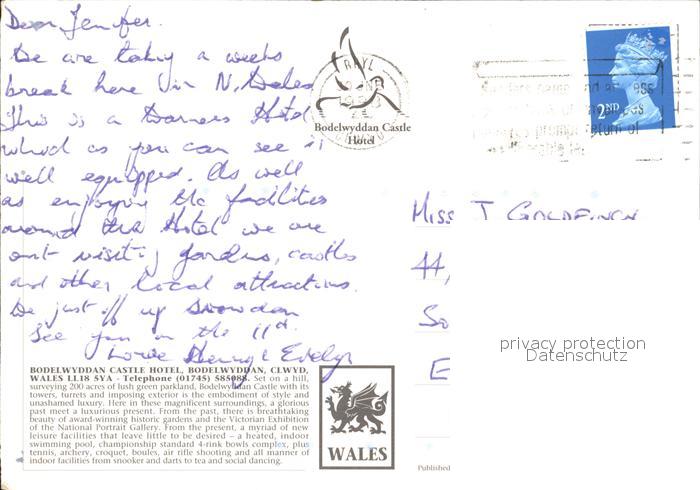 Dear Jennifer.
We are taking a weeks
break here in N. Wales
This is a Warners Hotel
which as you can see is
well equipped. As well
as enjoying the facilities
around the Hotel we are
out visiting gardens, castles
and other local attractions.
We just off up Snowdon
See you on the 11th
Love Henry & Evelyn
BODELWYDDAN CASTLE HOTEL, BODELWYDDAN, CLWYD,
WALES LL18 5YA - Telephone (01745) 585088. Set on a hill,
surveying 200 acres of lush green parkland, Bodelwyddan Castle with its
towers, turrets and imposing exterior is the embodiment of style and
unashamed luxury. Here in these magnificent surroundings, a glorious
past meet a luxurious present. From the past, there is breathtaking
beauty of award-winning historic gardens and the Victorian Exhibition
of the National Portrait Gallery. From the present, a myriad of new
leisure facilities that leave little to be desired – a heated, indoor
swimming pool, championship standard 4-rink bowls complex, plus
tennis, archery, croquet, boules, air rifle shooting and all manner of
indoor facilities from snooker and darts to tea and social dancing.
RHYL
Bodelwyddan Castle
Hotel
WALES
Published
2ND
prompt return of
Miss J
44,
So
E
privacy protection
Datenschutz